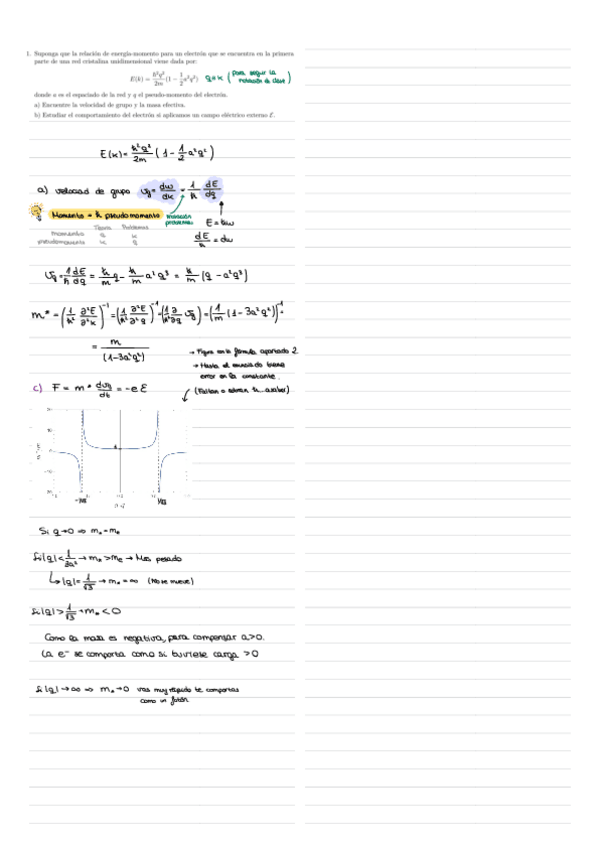 1. Suponga que la relación de energía-momento para un electrón que se encuentra en la primera
parte de una red cristalina unidimensional viene dada por:
E(k) = ħ²q²/2m (1 − 1/2 a²q²) q=k (para seguir la notación de clase)
donde a es el espaciado de la red y q el pseudo-momento del electrón.
a) Encuentre la velocidad de grupo y la masa efectiva.
b) Estudiar el comportamiento del electrón si aplicamos un campo eléctrico externo ℰ.
E(k) = ħ²q²/2m (1 − 1/2 a²q²)
a) velocidad de grupo vg = dω/dk = 1/ħ dE/dq
Momento = ħ pseudomomento
notación problemas
E = ħω
Teoría Problemas
momento q k
pseudomomento k q
dE/ħ = dω
vg = 1/ħ dE/dq = ħ/m q − ħ/m a²q³ = ħ/m (q − a²q³)
m* = (1/ħ² ∂²E/∂²k)⁻¹ = (1/ħ² ∂²E/∂²q)⁻¹ = (1/ħ² ∂/∂q vg) = (1/m (1−3a²q²))⁻¹
= m/(1−3a²q²)
→ Figura en la fórmula apartado 2
→ Hasta el enunciado tiene
error en la constante.
(Faltan o sobran ħ a saber)
c) F = m* dvg/dt = −e ℰ
Si q→0 ⇒ m* = me
Si |q| < 1/3a² → m* > me → Mas pesado
↳ |q| = 1/√3 → m* = ∞ (No se mueve)
Si |q| > 1/√3 → m* < 0
Como la masa es negativa, para compensar a>0.
La e⁻ se comporta como si tuviese carga >0
Si |q| → ∞ ⇒ m* → 0 vas muy rápido te comportas
como un fotón.